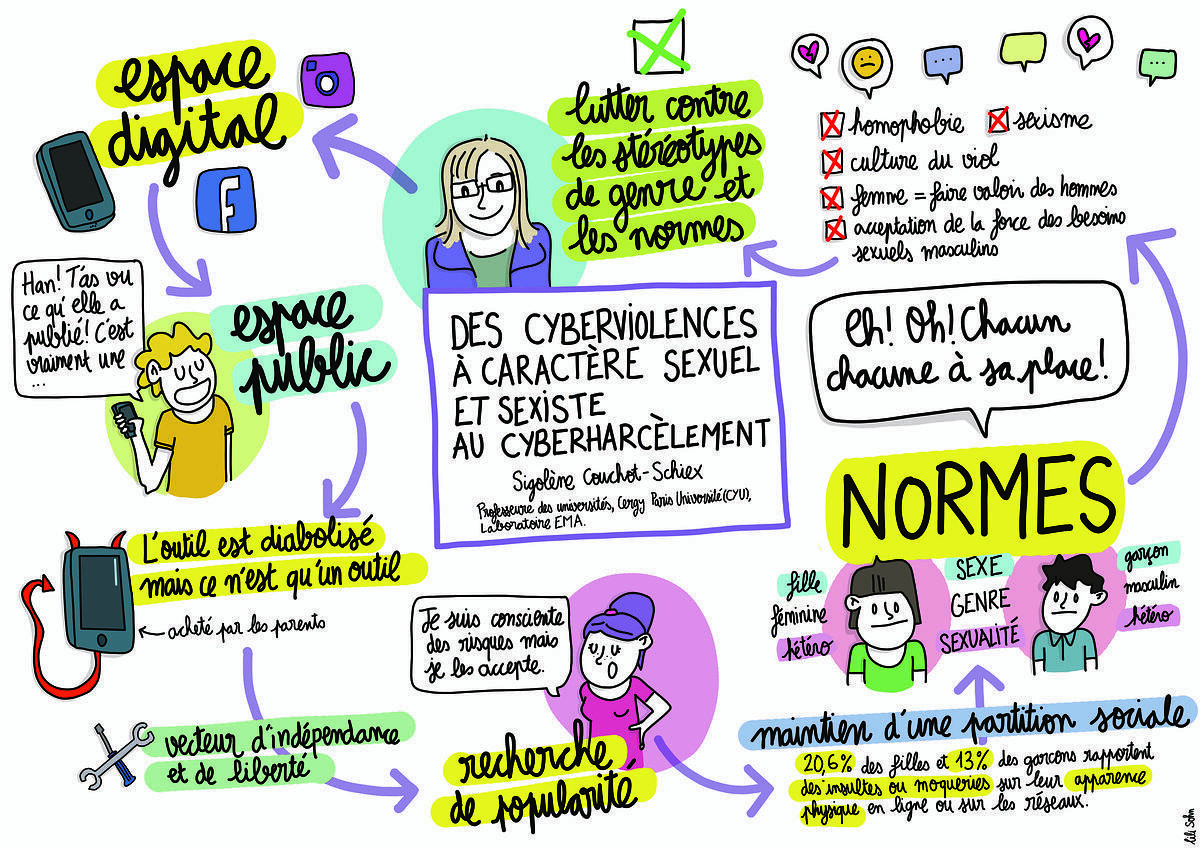 DES CYBERVIOLENCES
À CARACTÈRE SEXUEL
ET SEXISTE
AU CYBERHARCÈLEMENT
Sigolène Couchot-Schiex
Professeure des universités, Cergy Paris Université (CYU),
Laboratoire EMA.
espace
digital
espace
public
Han! T'as vu
ce qu'elle a
publié! C'est
vraiment une
...
L'outil est diabolisé
mais ce n'est qu'un outil
acheté par les parents
vecteur d'indépendance
et de liberté
Je suis consciente
des risques mais
je les accepte.
recherche
de popularité
maintien d'une partition sociale
20,6% des filles et 13% des garcons rapportent
des insultes ou moqueries sur leur apparence
physique en ligne ou sur les réseaux.
NORMES
fille
féminine
hétéro
SEXE
GENRE
SEXUALITÉ
garçon
masculin
hétéro
Eh! Oh! Chacun
chacune à sa place!
homophobie
sexisme
culture du viol
femme = faire valoir des hommes
acceptation de la force des besoins
sexuels masculins
lutter contre
les stéréotypes
de genre et
les normes
Lili Sohn